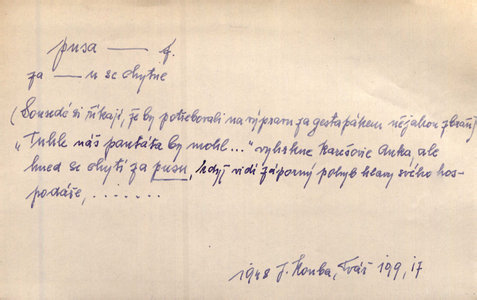 pusa —— f.
za —— u se chytne
(Sousedé si říkají, že by potřebovali na výpravu za gestapákem nějakou zbraň)
"Tuhle náš pantáta by mohl..." vyhrkne Karešovic Anka, ale
hned se chytí za pusu, když vidí záporný pohyb hlavy svého hos-
podáře, . . . . . . .
1948 J. Kouba, Tvář 199, 17